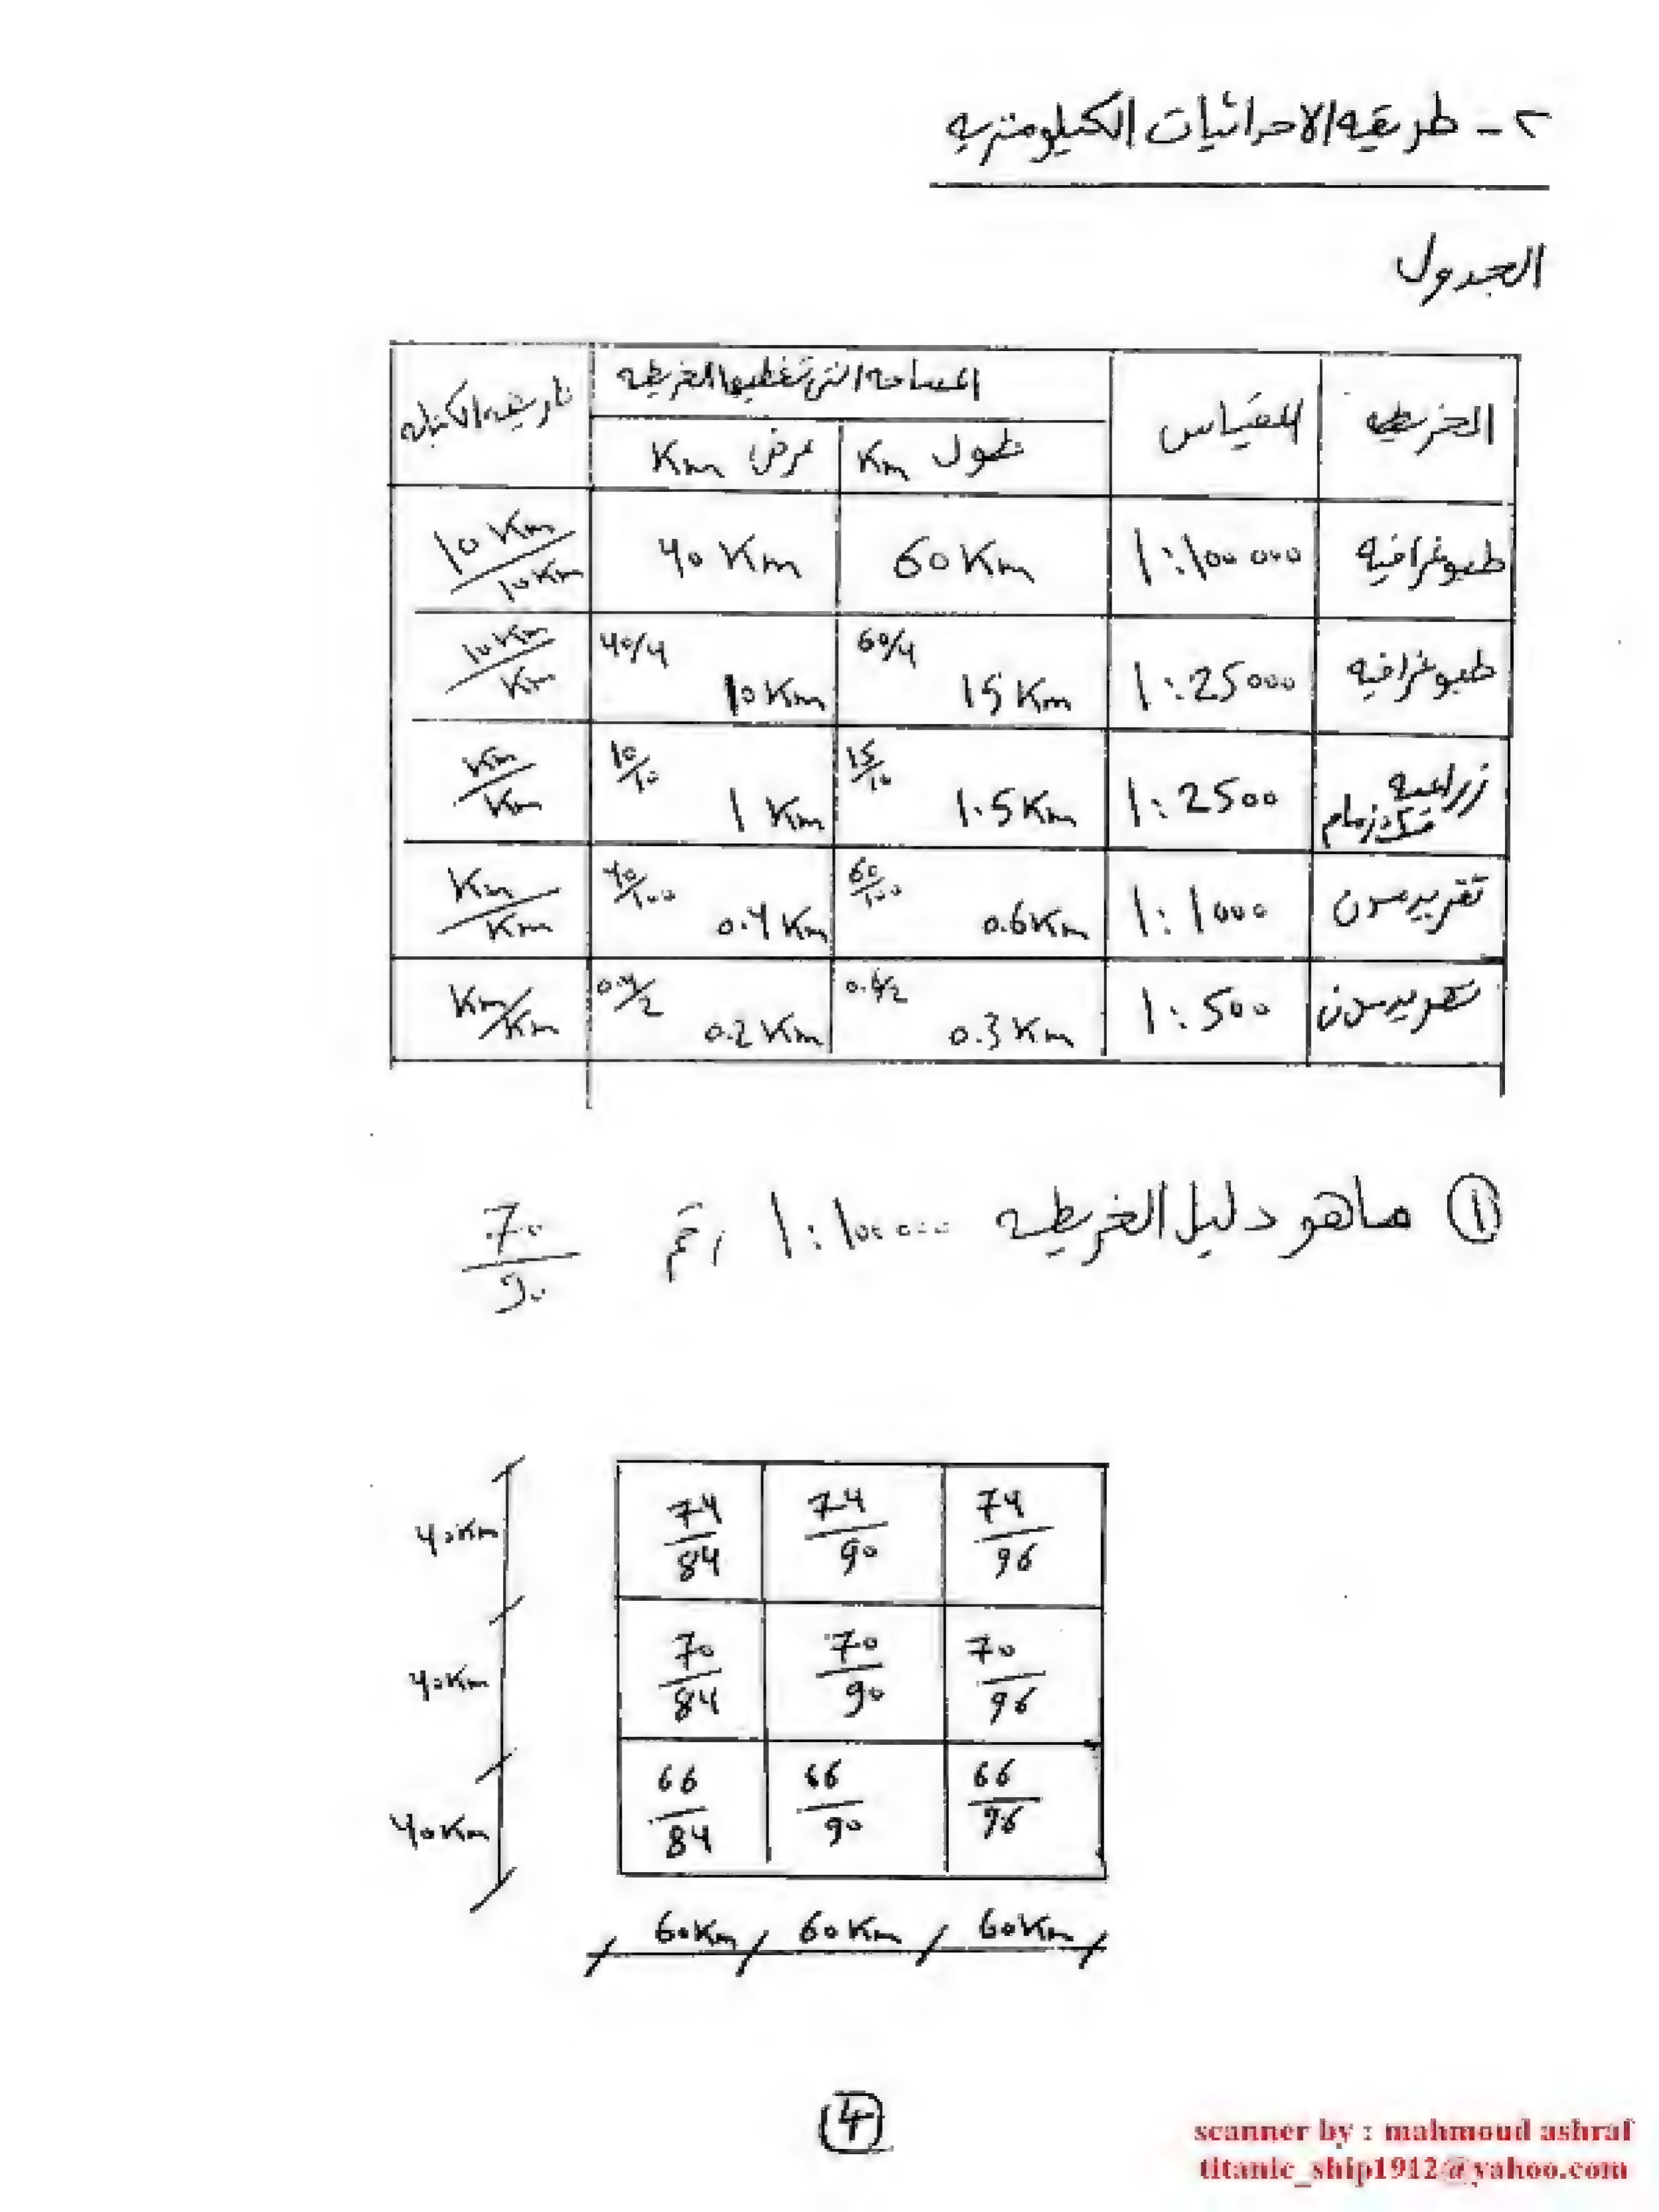 ٢ - طريقه الاحداثيات الكيلومتريه
الجدول
الخريطه المقياس المساحه التى تغطيها الخريطه الكتابه
طول Km عرض Km
طبوغرافيه 1:100 000 60 Km 40 Km 10 Km/10 Km
طبوغرافيه 1:25000 60/4 15 Km 40/4 10 Km 10 Km/Km
زراعيه فك زمام 1:2500 15/10 1.5 Km 10/10 1 Km Km/Km
تفريد مدن 1:1000 60/100 0.6 Km 40/100 0.4 Km Km/Km
تفريد مدن 1:500 0.6/2 0.3 Km 0.4/2 0.2 Km Km/Km
① ماهو دليل الخريطه 1:100000 رقم 70/90
40 Km 74/84 74/90 74/96
40 Km 70/84 70/90 70/96
40 Km 66/84 66/90 66/96
60 Km 60 Km 60 Km
4
scanner by : mahmoud ashraf
titanic_ship1912@yahoo.com